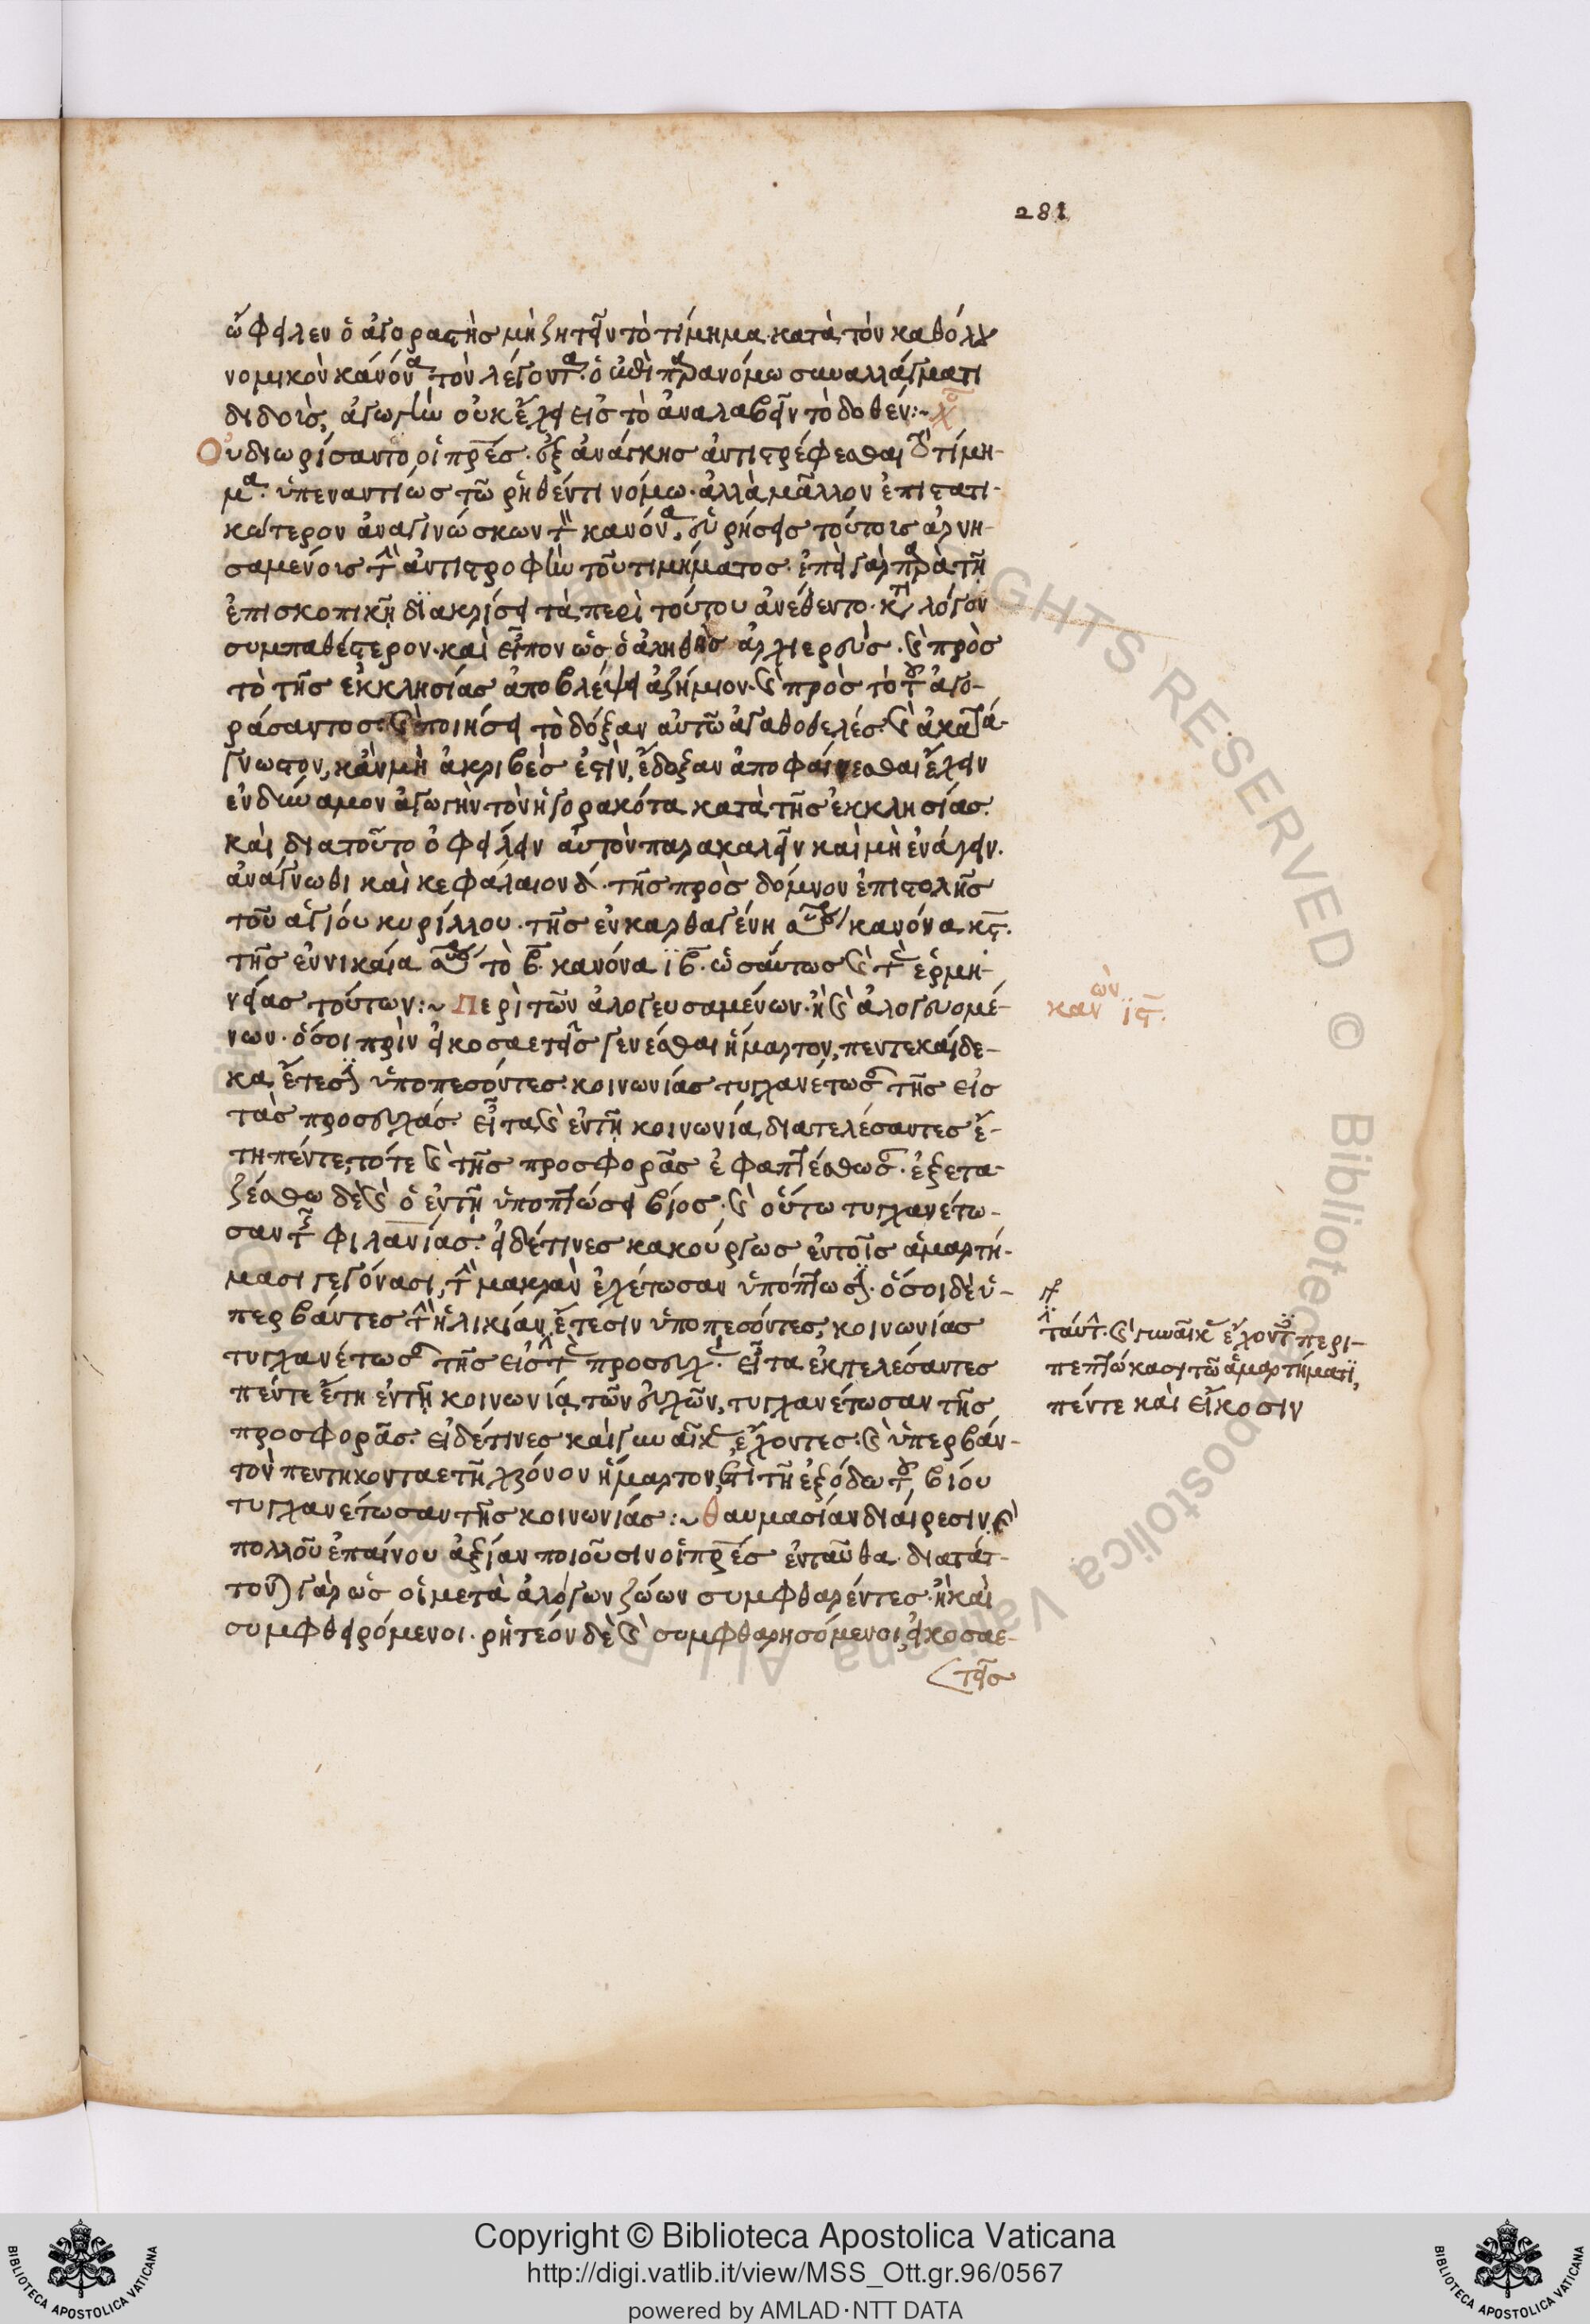 281
ὤφειλεν ὁ ἀγοραστὴς μὴ ζητεῖν τὸ τίμημα. κατὰ τὸν καθόλου
νομικὸν κανόνα τὸν λέγοντα. ὁ ἐπὶ παρανόμω συναλλάγματι
διδοὺς, ἀγωγὴν οὐκ ἔχει εἰς τὸ ἀναλαβεῖν τὸ δοθέν:~
Οὐ διωρίσαντο οἱ πρ̅ε̅ς. ἐξ ἀνάγκης ἀντιστρέφεσθαι τὸ τίμη-
μα. ὑπεναντίως τῶ ῥηθέντι νόμω. ἀλλὰ μᾶλλον ἐπιτατι-
κώτερον ἀναγινώσκων τὸν κανόνα, εὑρήσεις τούτοις ἀρνη-
σαμένοις τὴν ἀντιστροφὴν τοῦ τιμήματος. ἐπεὶ γὰρ παρὰ τῆ
ἐπισκοπικῆ διακρίσει τὰ περὶ τούτου ἀνέθεντο. κατὰ λόγον
συμπαθέστερον. καὶ εἶπον ὡς ὁ ἀληθὴς ἀρχιερεὺς. καὶ πρὸς
τὸ τῆς ἐκκλησίας ἀποβλέψει ἀζήμιον. καὶ πρὸς τὸ τοῦ ἀγο-
ράσαντος. καὶ ποιήσει τὸ δόξαν αὐτῶ ἀγαθοθελές. καὶ ἀκατά-
γνωστον, κἂν μὴ ἀκριβὲς ἐστὶν, ἔδοξαν ἀποφαίνεσθαι ἔχειν
ἐνδυνάμον ἀγωγὴν τὸν ἠγορακότα κατὰ τῆς ἐκκλησίας.
καὶ διατοῦτο ὀφείλειν αὐτὸν παρακαλεῖν καὶ μὴ ἐνάγειν.
ἀνάγνωθι καὶ κεφάλαιον δ. τῆς πρὸς δόμνον ἐπιστολῆς
τοῦ ἁγίου κυρίλλου. τῆς ἐν καρθαγένη συνόδου κανόνα κϛ.
τῆς ἐν νικαία συνόδου τὸ β. κανόνα ιβ. ὡσαύτως καὶ τὰς ἑρμη-
νείας τούτων:~ Περὶ τῶν ἀλογευσαμένων. ἢ καὶ ἀλογευομέ-
νων. ὅσοι πρὶν εἰκοσαετεῖς γενέσθαι ἥμαρτον, πεντεκαίδε-
κα ἔτεσιν ὑποπεσόντες. κοινωνίας τυγχανέτωσαν τῆς εἰς
τὰς προσευχάς. εἶτα καὶ ἐν τῆ κοινωνία διατελέσαντες ἔ-
τη πέντε, τότε καὶ τῆς προσφορᾶς ἐφαπτέσθωσαν. ἐξετα-
ζέσθω δὲ καὶ ὁ ἐν τῆ ὑποπτώσει βίος. καὶ οὕτω τυγχανέτω-
σαν τῆς φιλα̅ν̅ίας. εἰ δέ τινες κακούργως ἐν τοῖς ἁμαρτή-
μασι γεγόνασι, τὴν μακρὰν ἐχέτωσαν ὑπόπτωσιν. ὅσοι δὲ ὑ-
περβάντες τὴν ἡλικίαν, ἔτεσιν ὑποπεσόντες, κοινωνίας
τυγχανέτωσαν τῆς εἰς τὰς προσευχὰς. εἶτα ἐκτελέσαντες
πέντε ἔτη ἐν τῆ κοινωνία τῶν εὐχῶν, τυγχανέτωσαν τῆς
προσφορᾶς. εἰ δέ τινες καὶ γυναῖκας ἔχοντες. καὶ ὑπερβάν-
τον πεντηκονταετῆ χρόνον ἥμαρτον, ἐπὶ τῆ ἐξόδω τοῦ βίου
τυγχανέτωσαν τῆς κοινωνίας:~ Θαυμασίαν διαίρεσιν καὶ
πολλοῦ ἐπαίνου ἀξίαν ποιοῦσιν οἱ πρ̅ε̅ς ἐνταῦθα. διατάτ-
τονται γὰρ ὡς οἱ μετὰ ἀλόγων ζώων συμφθαρέντες. ἢ καὶ
συμφθειρόμενοι. ῥητέον δὲ καὶ συμφθαρησόμενοι, εἰκοσαε-
τεῖς
κανὼν ιϛ.
ταύτην. καὶ γυναῖκας ἔχοντες περι-
πεπτώκασι τῶ ἁμαρτήματι,
πέντε καὶ εἴκοσιν
ALL RIGHTS RESERVED © Biblioteca Apostolica Vaticana
Copyright © Biblioteca Apostolica Vaticana
http://digi.vatlib.it/view/MSS_Ott.gr.96/0567
powered by AMLAD·NTT DATA
BIBLIOTECA APOSTOLICA VATICANA
BIBLIOTECA APOSTOLICA VATICANA